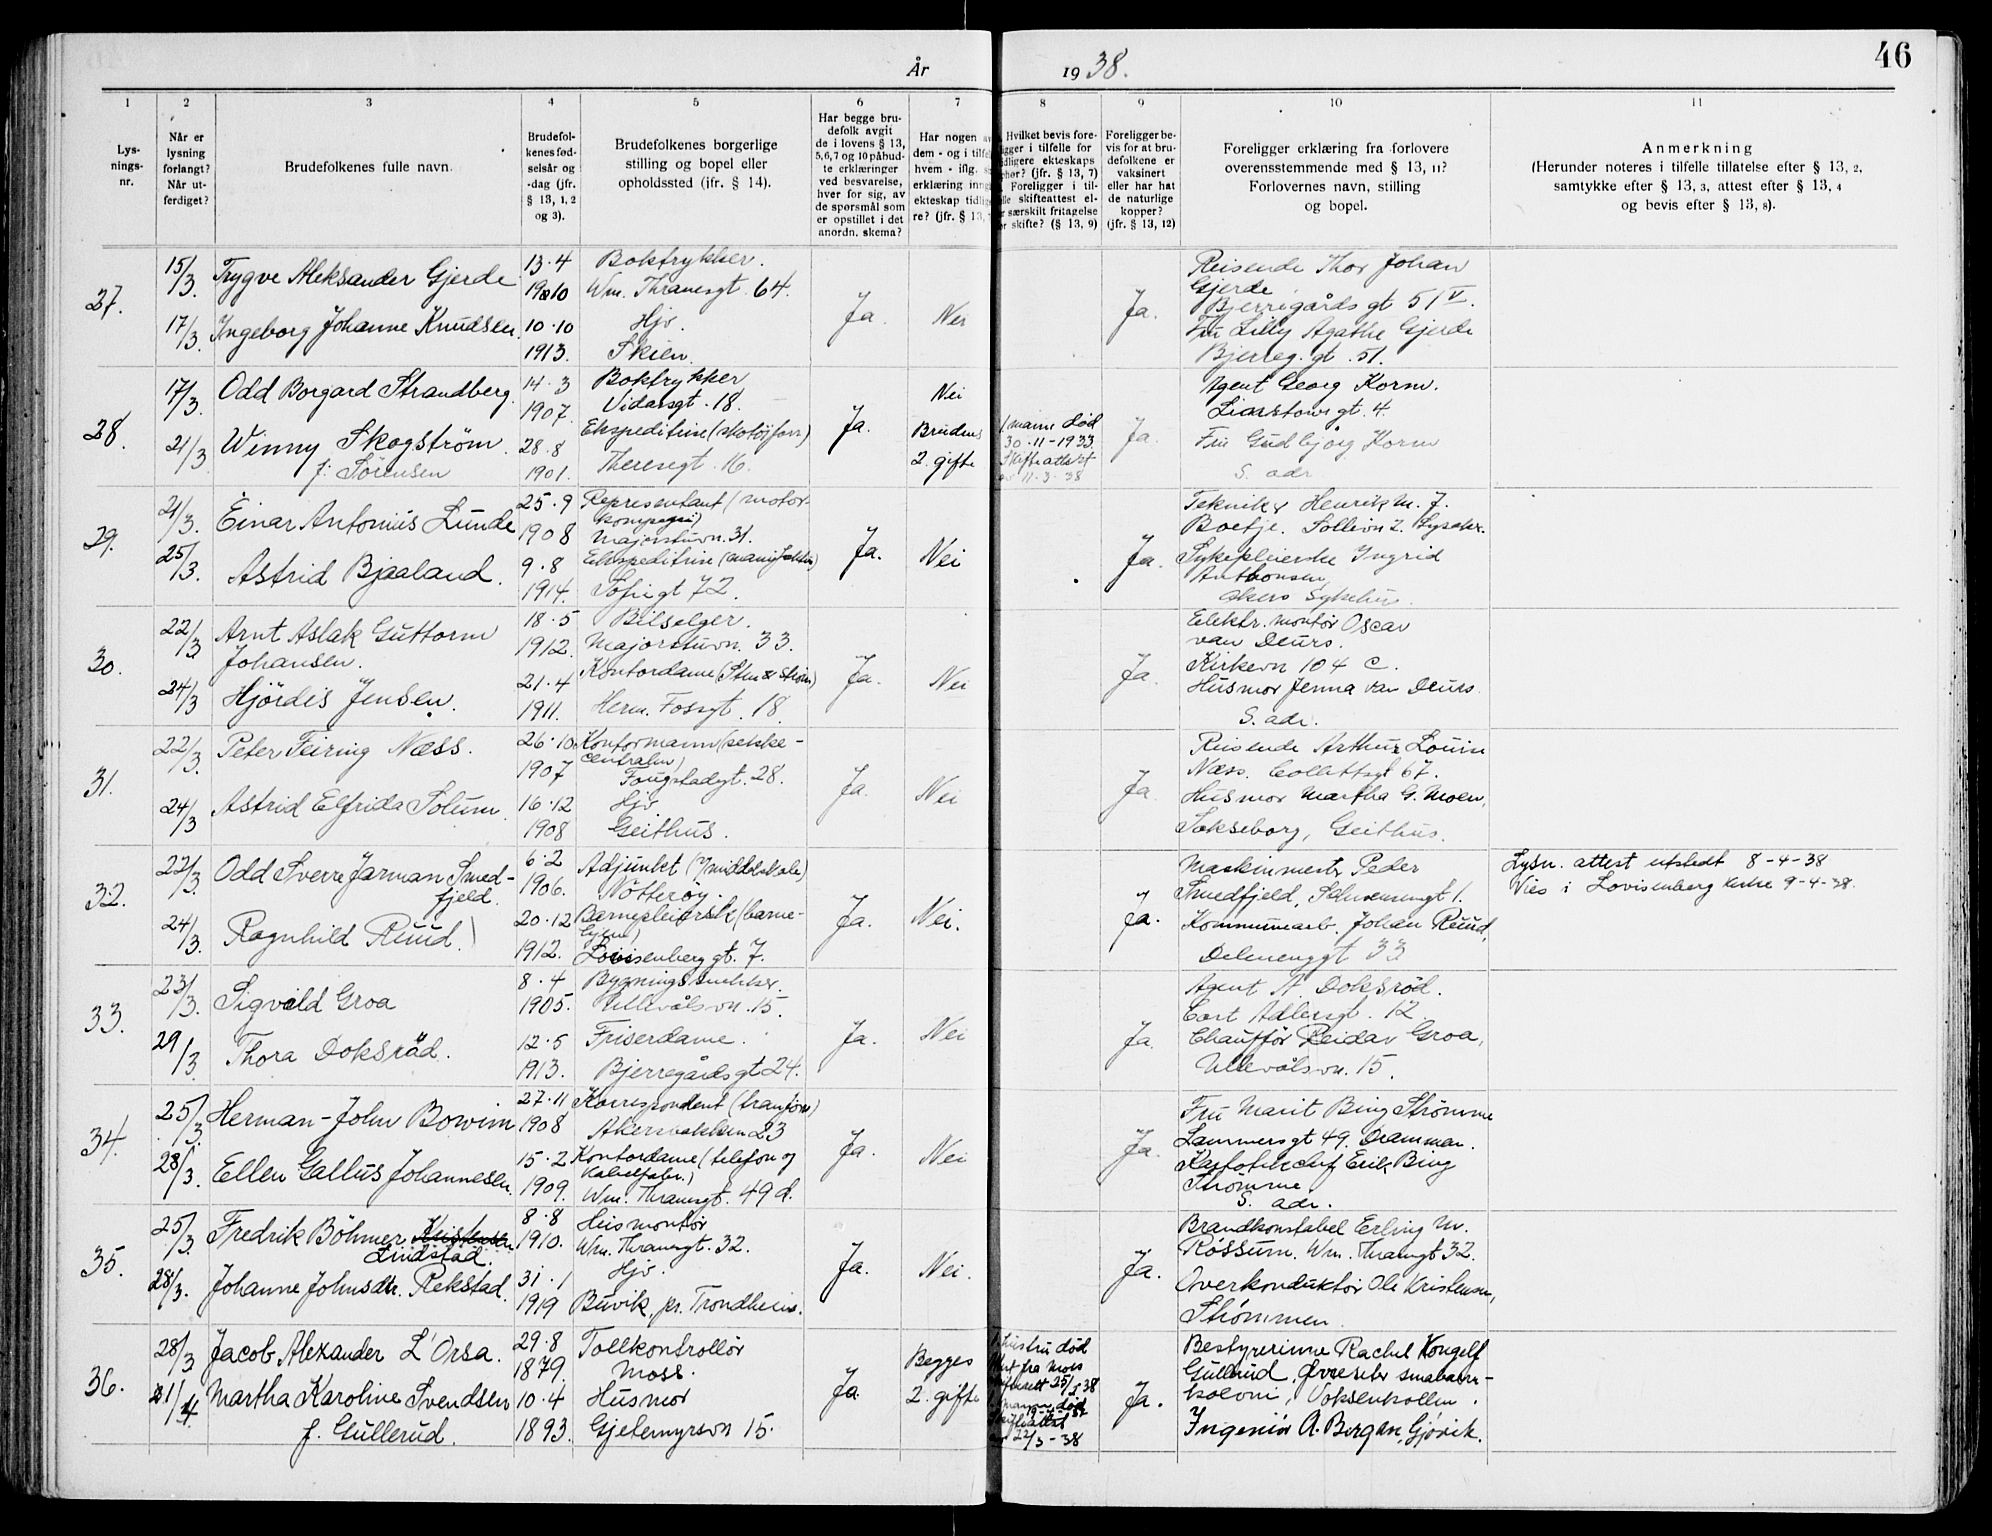 År 1938.
46
1 2 3 4 5 6 7 8 9 10 11
Lys-
nings-
nr.
Når er
lysning
forlangt?
Når ut-
ferdiget?
Brudefolkenes fulle navn.
Brudefol-
kenes fød-
selsår og
-dag (jfr.
§ 13, 1, 2
og 3).
Brudefolkenes borgerlige
stilling og bopel eller
opholdssted (ifr. § 14).
Har begge bru-
defolk avgit
de i lovens § 13,
5,6,7 og 10 påbud-
te erklæringer
ved besvarelse,
hver for sig, av
de spørsmål som
er opstillet i det
anordn. skema?
Har nogen av
dem - og i tilfel
hvem - iflg. s
erklæring inng
ekteskap tidlig
re? (jfr. § 13, 7
Hvilket bevis fore-
ligger i tilfelle for
tidligere ekteskaps
ophør? (jfr. § 13, 7)
Foreligger i til-
elle skifteattest el-
er særskilt fritagelse
or skifte? (§ 13, 9)
Foreligger be-
vis for at bru-
defolkene er
vaksinert
eller har hat
de naturlige
kopper?
(jfr. § 13, 12)
Foreligger erklæring fra forlovere
overensstemmende med § 13, 11?
Forlovernes navn, stilling
og bopel.
Anmerkning
(Herunder noteres i tilfelle tillatelse efter § 13, 2,
samtykke efter § 13, 3, attest efter § 13, 4
og bevis efter § 13, 8).
27.
15/3. Trygve Aleksander Gjerde
13.4
1910
Boktrykker.
Wm. Thranesgt. 64.
17/3. Ingeborg Johanne Knudsen
10.10
1913.
Hjv.
Skien.
Ja.
Nei
Ja.
Reisende Thor Johan
Gjerde
Bjerregårds gt 51 V.
Fru Lilly Agathe Gjerde
Bjerreg. gt. 51.
28.
17/3. Odd Borgard Strandberg.
14.3
1907.
Boktrykker
Vidarsgt. 18.
21/3 Winny Skogström.
f. Sörensen
28.8
1901.
Ekspeditrise (skotöiforr)
Theresegt. 16.
Ja.
Nei
Brudens
2. gifte
1 mann død
30-11-1933
Skifteattest
11-3-38
Ja.
Agent Georg Korm.
gt. 4.
Fru Gudbjørg Korm
S. adr
29.
21/3. Einar Antonius Lunde
25.9
1908
Representant (motor-
kompagni)
Majorstuvn. 31.
25/3. Astrid Bjaaland.
9.8
1914.
Ekspeditrise
Sofiegt 72.
Ja.
Nei
Ja.
Tekniker Henrik M. J.
Boetje. Sollivn 2. Lysaker.
Sykepleierske Ingrid
Anthonsen,
Akers Sykehus.
30.
22/3 Arnt Aslak Guttorm
Johansen.
18.5
1912.
Bilselger.
Majorstuvn. 33.
24/3 Hjördis Jensen.
21.4
1911.
Kontordame (Sten & Ström)
Herm. Fossgt. 18.
Ja.
Nei
Ja.
Elektr. montör Oscar
van Deurs.
Kirkevn 104 C.
Husmor Jenna van Deurs.
S. adr.
31.
22/3. Peter Feiring Næss.
26.10.
1907
Kontormann
centralen)
Fougstadgt. 28.
24/3 Astrid Elfrida Solum.
16.12
1908
Hjv
Geithus.
Ja.
Nei
Ja.
Reisende Arthur Louis
Næss. Collettsgt 67.
Husmor Martha G. Moen,
Geithus.
32.
22/3. Odd Sverre Jarman Smed-
fjeld.
6.2
1906.
Adjunkt
Nötteröy.
24/3. Ragnhild Ruud.
20.12
1912.
Barnepleierske (barne-
hjem)
Lovisenberg gt. 7.
Ja.
Nei.
Ja.
Maskinmester Peder
Smedfjeld, Schwensensgt 1.
Kommunearb. Johan Ruud,
Delenenggt 33
Lysn. attest utstedt 8-4-38
Vies i Lovisenberg kirke 9-4-38.
33.
23/3. Sigvald Groa
8.4
1905.
Bygningssnekker.
Ullevålsvn. 15.
29/3. Thora Doksröd.
12.5
1913.
Friserdame.
Bjerregårdsgt 24.
Ja.
Nei
Ja.
Agent A. Doksröd.
Cort Adlersgt. 12.
Chauffør Reidar Groa,
Ullevålsvn. 15.
34.
25/3. Herman-John Bowim
27.11
1908
Korrespondent
Akersbakken 23
28/3. Ellen Gallus Johannesen.
15.2
1909.
Kontordame (telefon og
kabelfabr.)
Wm. Thranesgt. 49 d.
Ja.
Nei
Ja.
Fru Marit Bing Strömme
Lammersgt 49. Drammen.
Erik Bing
Strömme
S. adr.
35.
25/3. Fredrik Böhmer Kristensen
Lindstad.
8.8
1910.
Heismontör
Wm. Thranesgt. 32.
28/3. Johanne Johnsdtr. Rekstad.
31.1
1919
Hjv.
Buvik, pr. Trondheim.
Ja.
Nei.
Ja.
Brandkonstabel Erling M.
Røssum. Wm. Thranesgt 32.
Overkonduktör Ole Kristensen,
Strömmen
36.
28/3 Jacob Alexander L'Orsa.
29.8
1879.
Tollkontrollör
Moss.
31/4 Martha Karoline Svendsen
f. Gullerud.
10.4
1893.
Husmor
Gjetemyrsvn 15.
Ja.
Begges
2. gifte
hustru død
fra Moss
25/3 38
mann død
Skifteattest
22/3-38
Ja.
Bestyrerinne Rachel Kongelf
Gullerud, Øvreseter småbarn-
Voksenkollen.
Ingeniör A. Bergan, Gjövik.